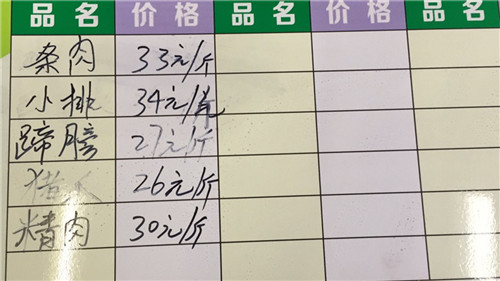 品名 价格 品名 价格 品名
条肉 33元/斤
小排 34元/斤
蹄膀 27元/斤
猪 26元/斤
精肉 30元/斤